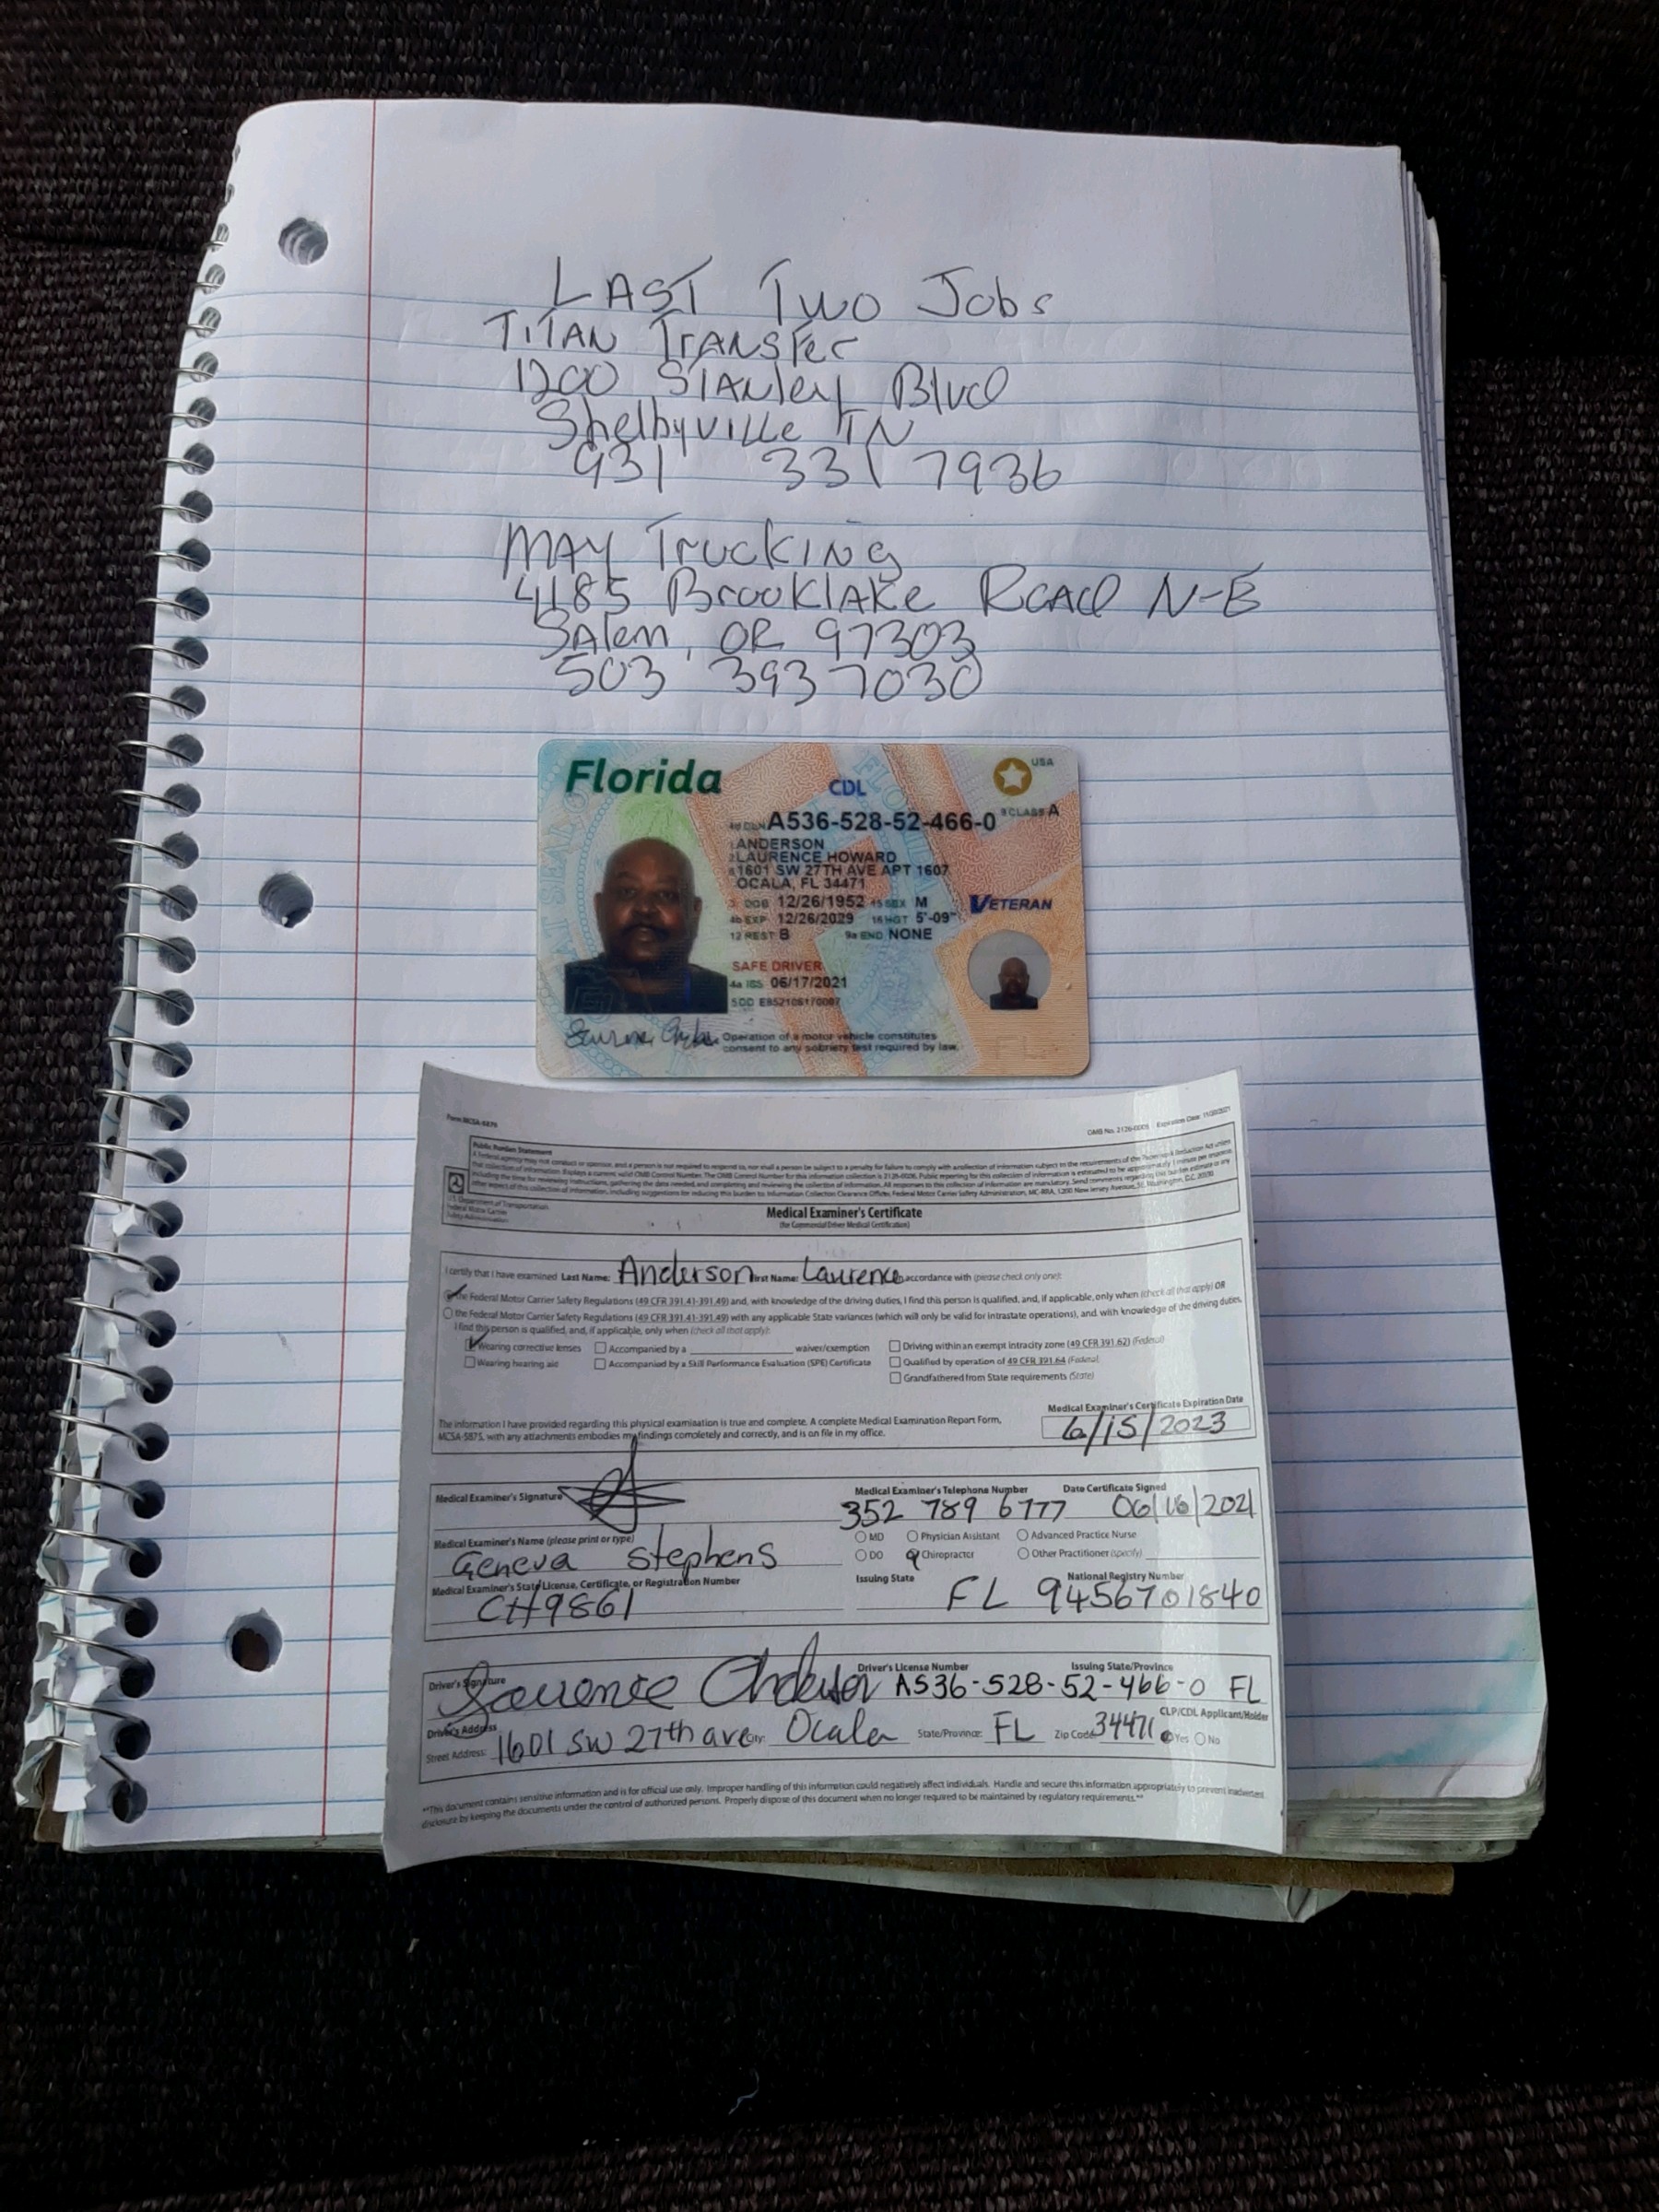 LAST TWO Jobs
TITAN TRANSfer
1200 STANley Blvd
Shelbyville TN
931 331 7936
MAY TrucKING
4185 BrooklAKe ROAd N-E
SAlem, OR 97303
503 393 7030
Florida
USA
CDL
9 CLASS A
4d DLN A536-528-52-466-0
1 ANDERSON
2 LAURENCE HOWARD
8 1601 SW 27TH AVE APT 1607
OCALA, FL 34471
3 DOB 12/26/1952 15 SEX M
VETERAN
4b EXP 12/26/2029 16 HGT 5'-09"
12 REST B 9a END NONE
SAFE DRIVER
4a ISS 06/17/2021
5 DD
Operation of a motor vehicle constitutes
consent to any sobriety test required by law.
Form MCSA-5876
OMB No. 2126-0006 Expiration Date: 11/30/2021
Public Burden Statement
U.S. Department of Transportation
Federal Motor Carrier
Safety Administration
Medical Examiner's Certificate
(for Commercial Driver Medical Certification)
I certify that I have examined Last Name: Anderson First Name: Laurence in accordance with (please check only one):
the Federal Motor Carrier Safety Regulations (49 CFR 391.41-391.49) and, with knowledge of the driving duties, I find this person is qualified, and, if applicable, only when (check all that apply) OR
the Federal Motor Carrier Safety Regulations (49 CFR 391.41-391.49) with any applicable State variances (which will only be valid for intrastate operations), and, with knowledge of the driving duties,
I find this person is qualified, and, if applicable, only when (check all that apply):
Wearing corrective lenses Accompanied by a waiver/exemption Driving within an exempt intracity zone (49 CFR 391.62) (Federal)
Wearing hearing aid Accompanied by a Skill Performance Evaluation (SPE) Certificate Qualified by operation of 49 CFR 391.64 (Federal)
Grandfathered from State requirements (State)
Medical Examiner's Certificate Expiration Date
6/15/2023
The information I have provided regarding this physical examination is true and complete. A complete Medical Examination Report Form,
MCSA-5875, with any attachments embodies my findings completely and correctly, and is on file in my office.
Medical Examiner's Signature
Medical Examiner's Telephone Number Date Certificate Signed
352 789 6777 06/16/2021
Medical Examiner's Name (please print or type)
Geneva Stephens
MD Physician Assistant Advanced Practice Nurse
DO Chiropractor Other Practitioner (specify)
Medical Examiner's State License, Certificate, or Registration Number
CH9861
Issuing State National Registry Number
FL 9456701840
Driver's Signature
Laurence Anderson
Driver's License Number Issuing State/Province
A536-528-52-466-0 FL
Driver's Address
CLP/CDL Applicant/Holder
Street Address: 1601 SW 27th ave City: Ocala State/Province: FL Zip Code: 34471 Yes No
**This document contains sensitive information and is for official use only. Improper handling of this information could negatively affect individuals. Handle and secure this information appropriately to prevent inadvertent
disclosure by keeping the documents under the control of authorized persons. Properly dispose of this document when no longer required to be maintained by regulatory requirements.**